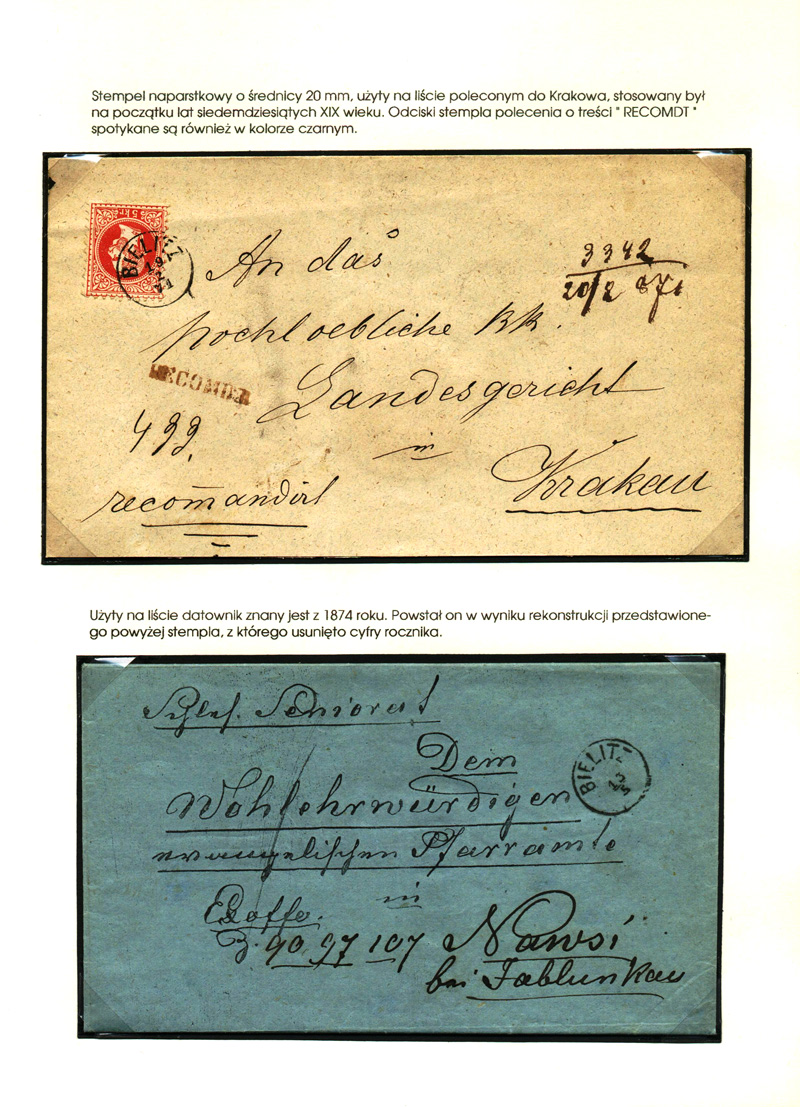 Stempel naparstkowy o średnicy 20 mm, użyty na liście poleconym do Krakowa, stosowany był
na początku lat siedemdziesiątych XIX wieku. Odciski stempla polecenia o treści " RECOMDT "
spotykane są również w kolorze czarnym.
5 kr
BIELITZ
19
2
71
An das
3342
20/2 871
hochloebliche KK.
RECOMDT
Landesgericht
499.
in
Krakau
recomandirt
Użyty na liście datownik znany jest z 1874 roku. Powstał on w wyniku rekonstrukcji przedstawione-
go powyżej stempla, z którego usunięto cyfry rocznika.
Schles. Seniorat
Dem
BIELITZ
13
5
Wohlehrwürdigen
evangelischen Pfarramte
in
Z. 90 97 107
Nawsi
bei Jablunkau